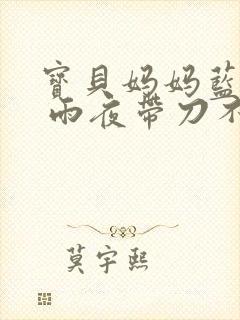 寶貝妈妈藍
雨夜帶刀不
莫宇熙